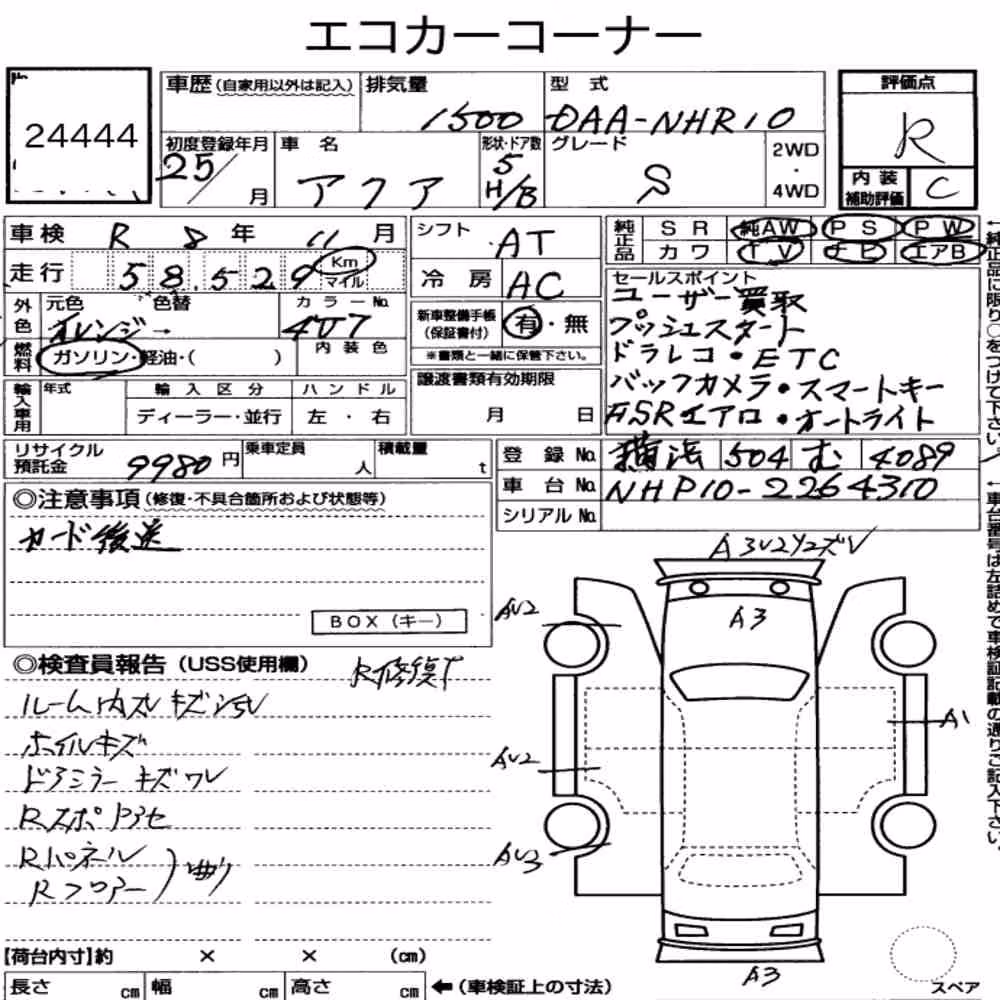 エコカーコーナー
No.
24444
車歴 (自家用以外は記入)
排気量
1500
型 式
DAA-NHP10
評価点
R
内装
補助評価
C
初度登録年月
25/ 月
車 名
アクア
形状・ドア数
5
H/B
グレード
S
2WD
・
4WD
車検 R 8 年 11 月
走行 58,529 Km
マイル
シフト
AT
冷 房
AC
純正品
SR 純AW PS PW
カワ TV ナビ エアB
外色
元色
オレンジ→
色替
カラーNo.
4U7
内装色
燃料
ガソリン・軽油・( )
新車整備手帳
(保証書付)
有・無
※書類と一緒に保管下さい。
セールスポイント
ユーザー買取
プッシュスタート
ドラレコ・ETC
バックカメラ・スマートキー
エアロ・オートライト
輸入車用
年式
輸 入 区 分
ディーラー・並行
ハ ン ド ル
左 ・ 右
譲渡書類有効期限
月 日
リサイクル
預託金
9980 円
乗車定員
人
積載量
t
登 録 No. 横浜 504 む 4089
車 台 No. NHP10-2264310
シリアル No.
◎注意事項 (修復・不具合箇所および状態等)
カード後送
BOX (キー)
◎検査員報告 (USS使用欄)
R修復す
ルーム内スレキズシミV
ホイルキズ
ドアミラーキズワレ
Rスポアセ
Rパネル
Rフロアー
曲り
A3
AU2
A1
AU2
AU3
A3
【荷台内寸】約 × × (cm)
長さ cm 幅 cm 高さ cm ←(車検証上の寸法)
スペア
←純正品に限り○をつけて下さい。
←車台番号は左詰めで車検証記載の通りご記入下さい。